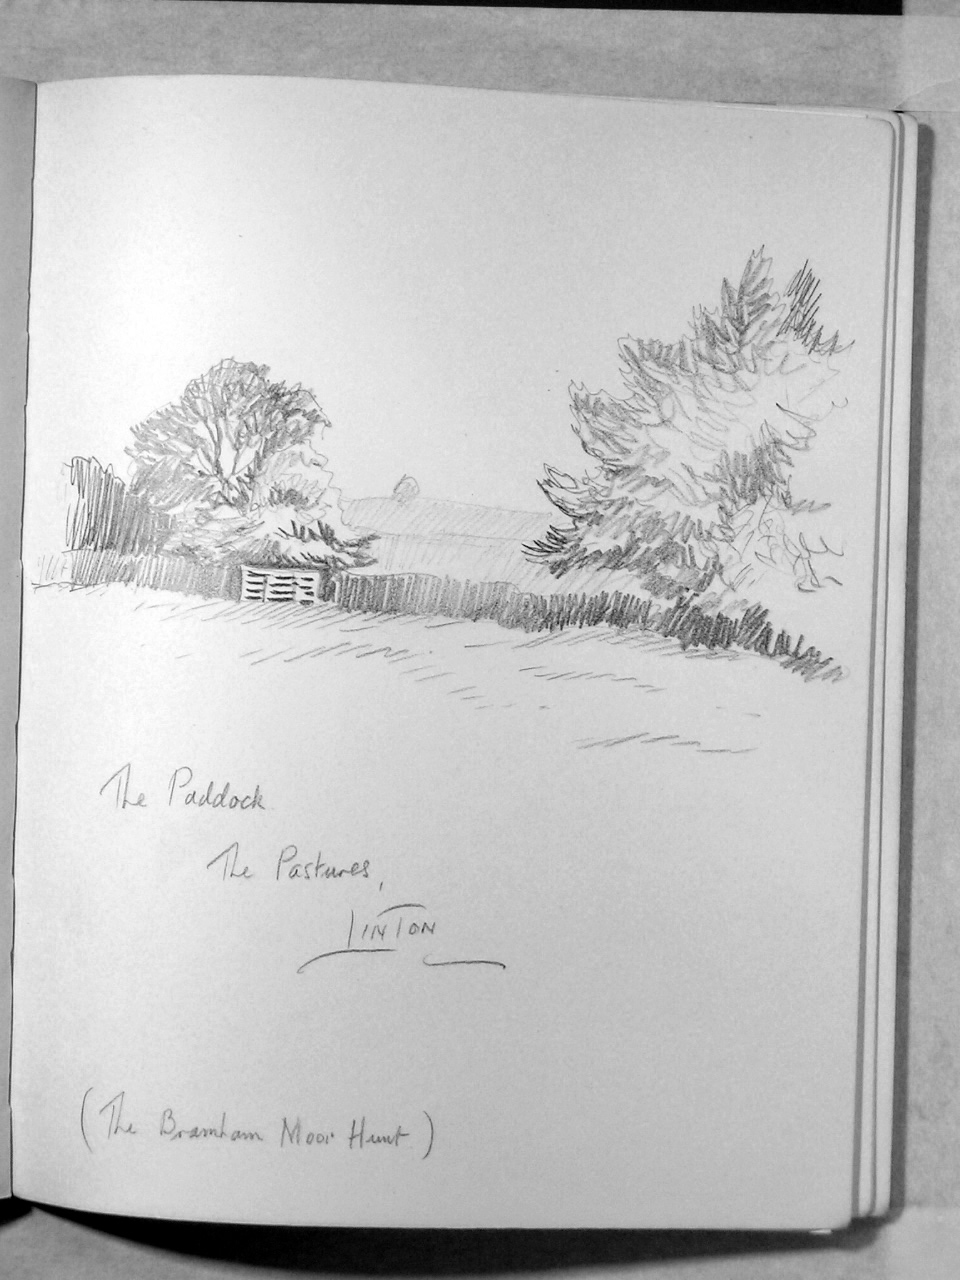 The Paddock
The Pastures,
LINTON
(The Bramham Moor Hunt)